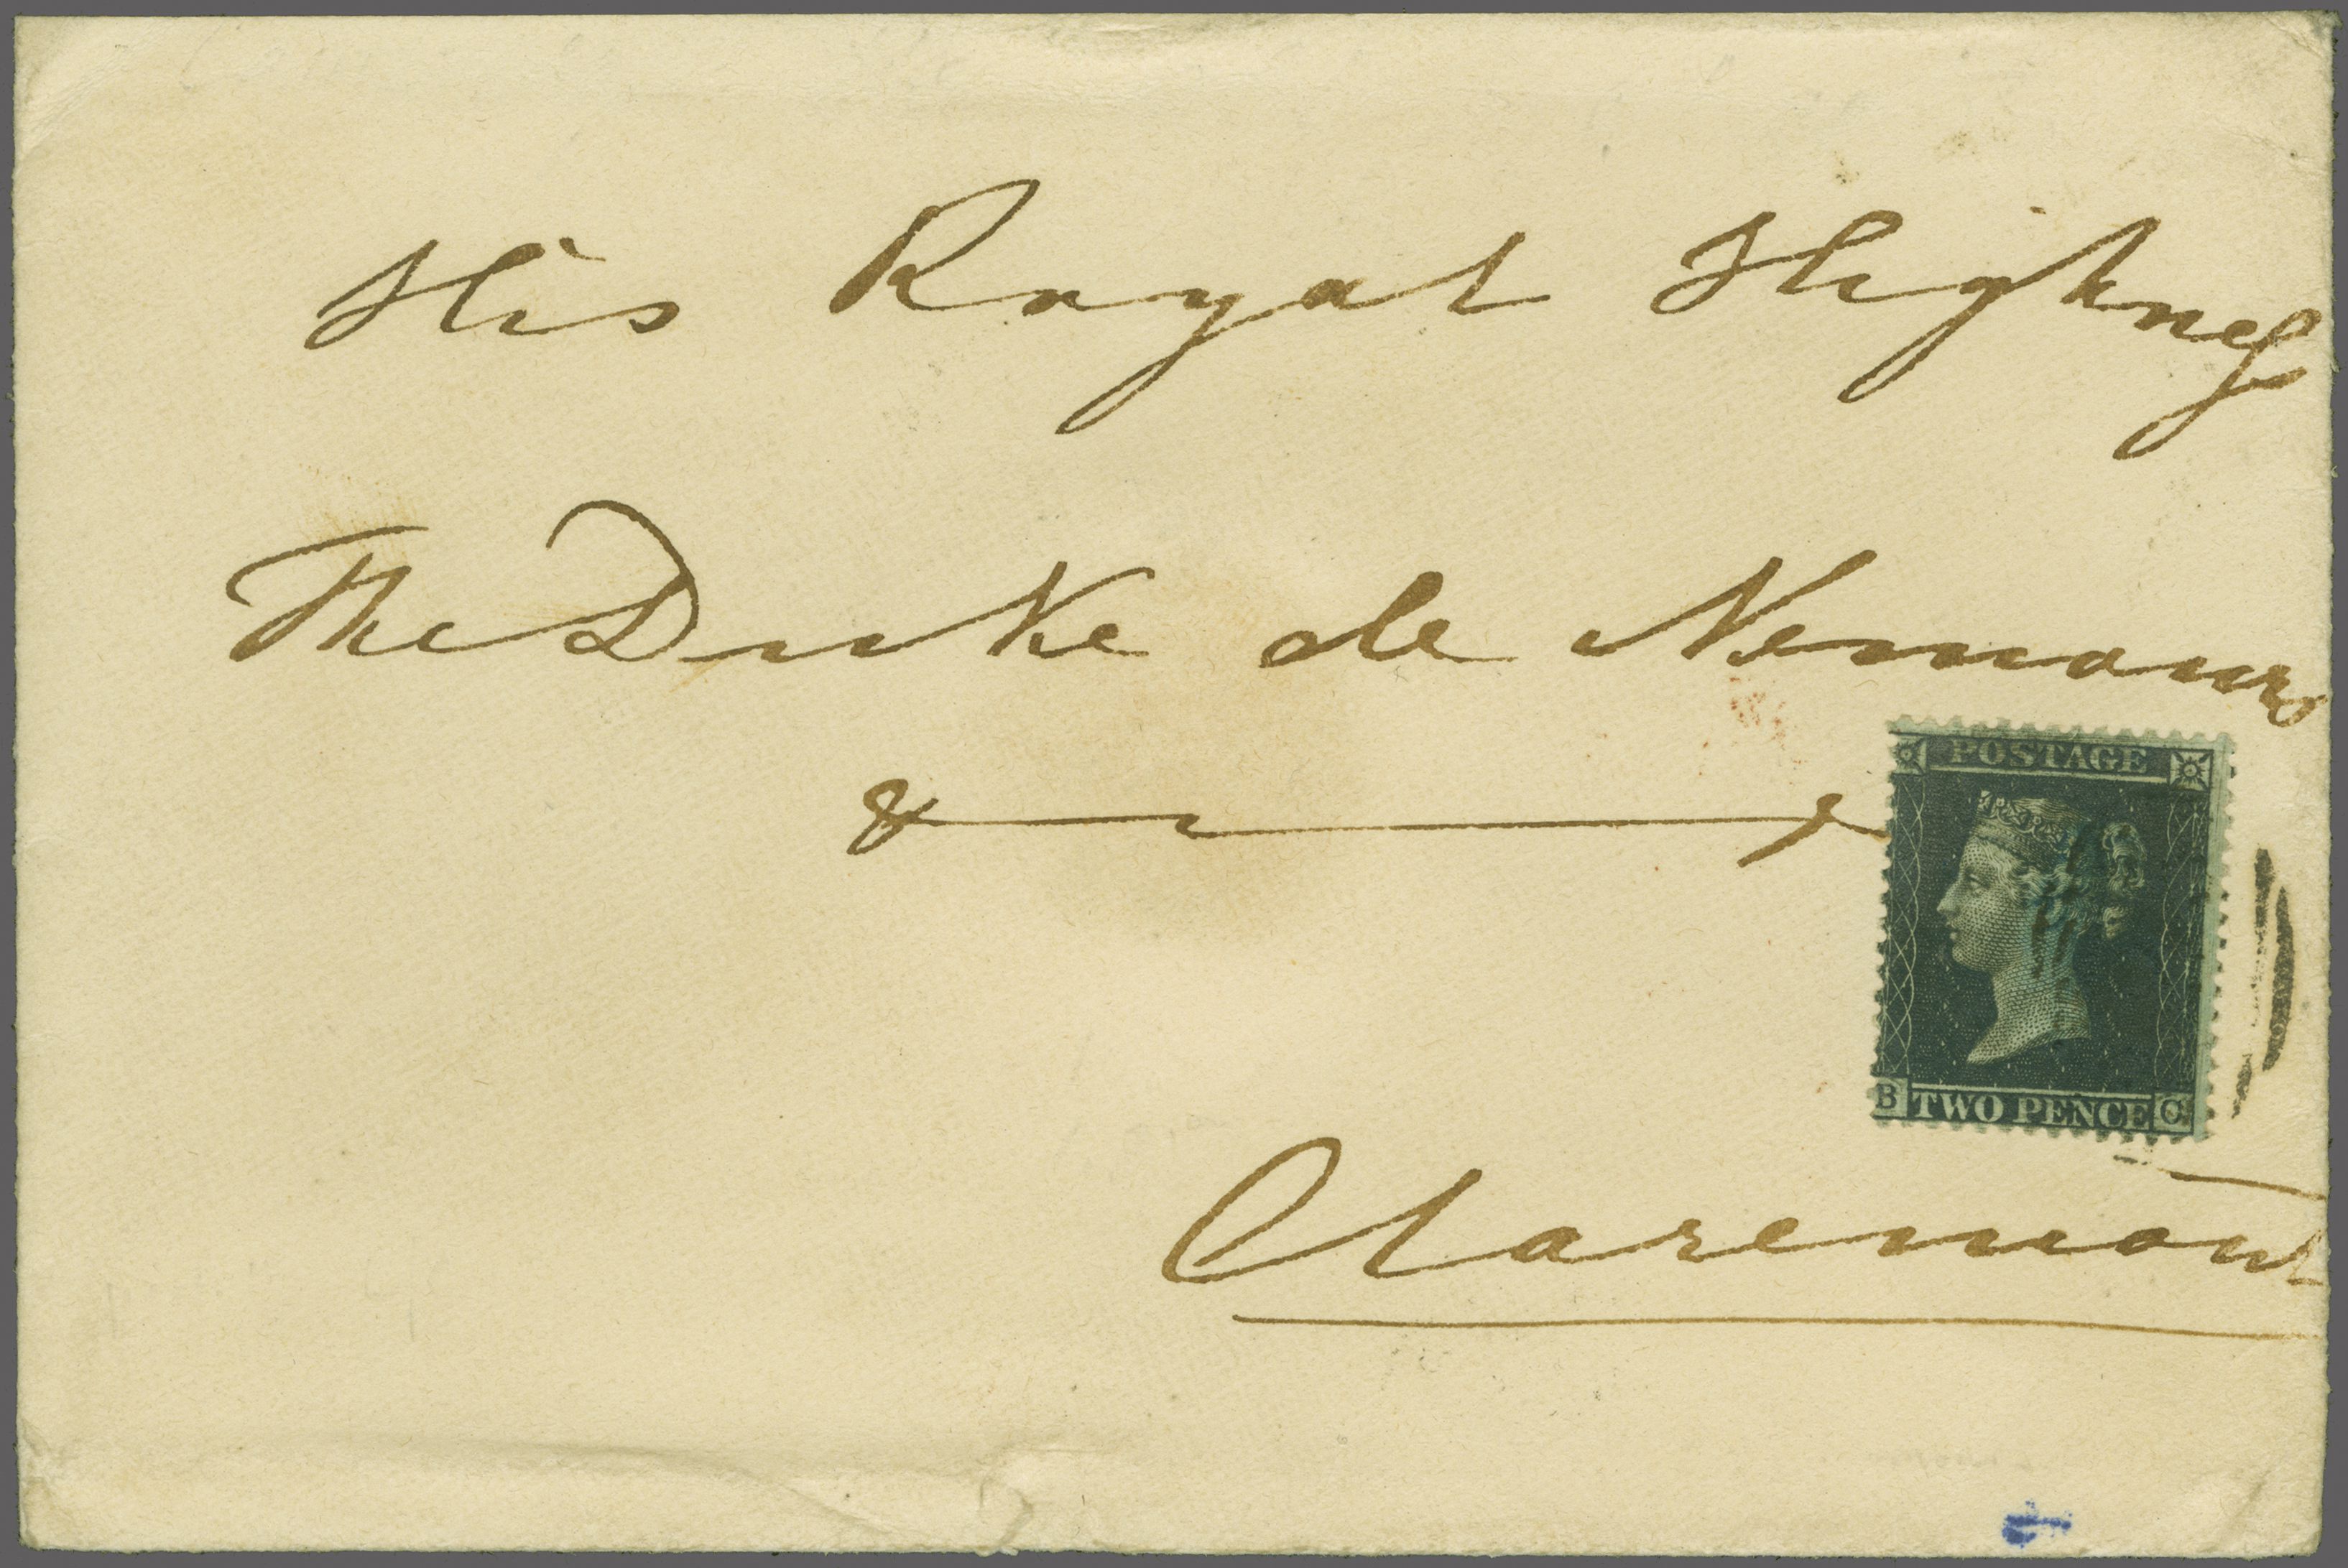 His Royal Highness
The Duke de Nemours
&
POSTAGE
B TWO PENCE C
Claremont